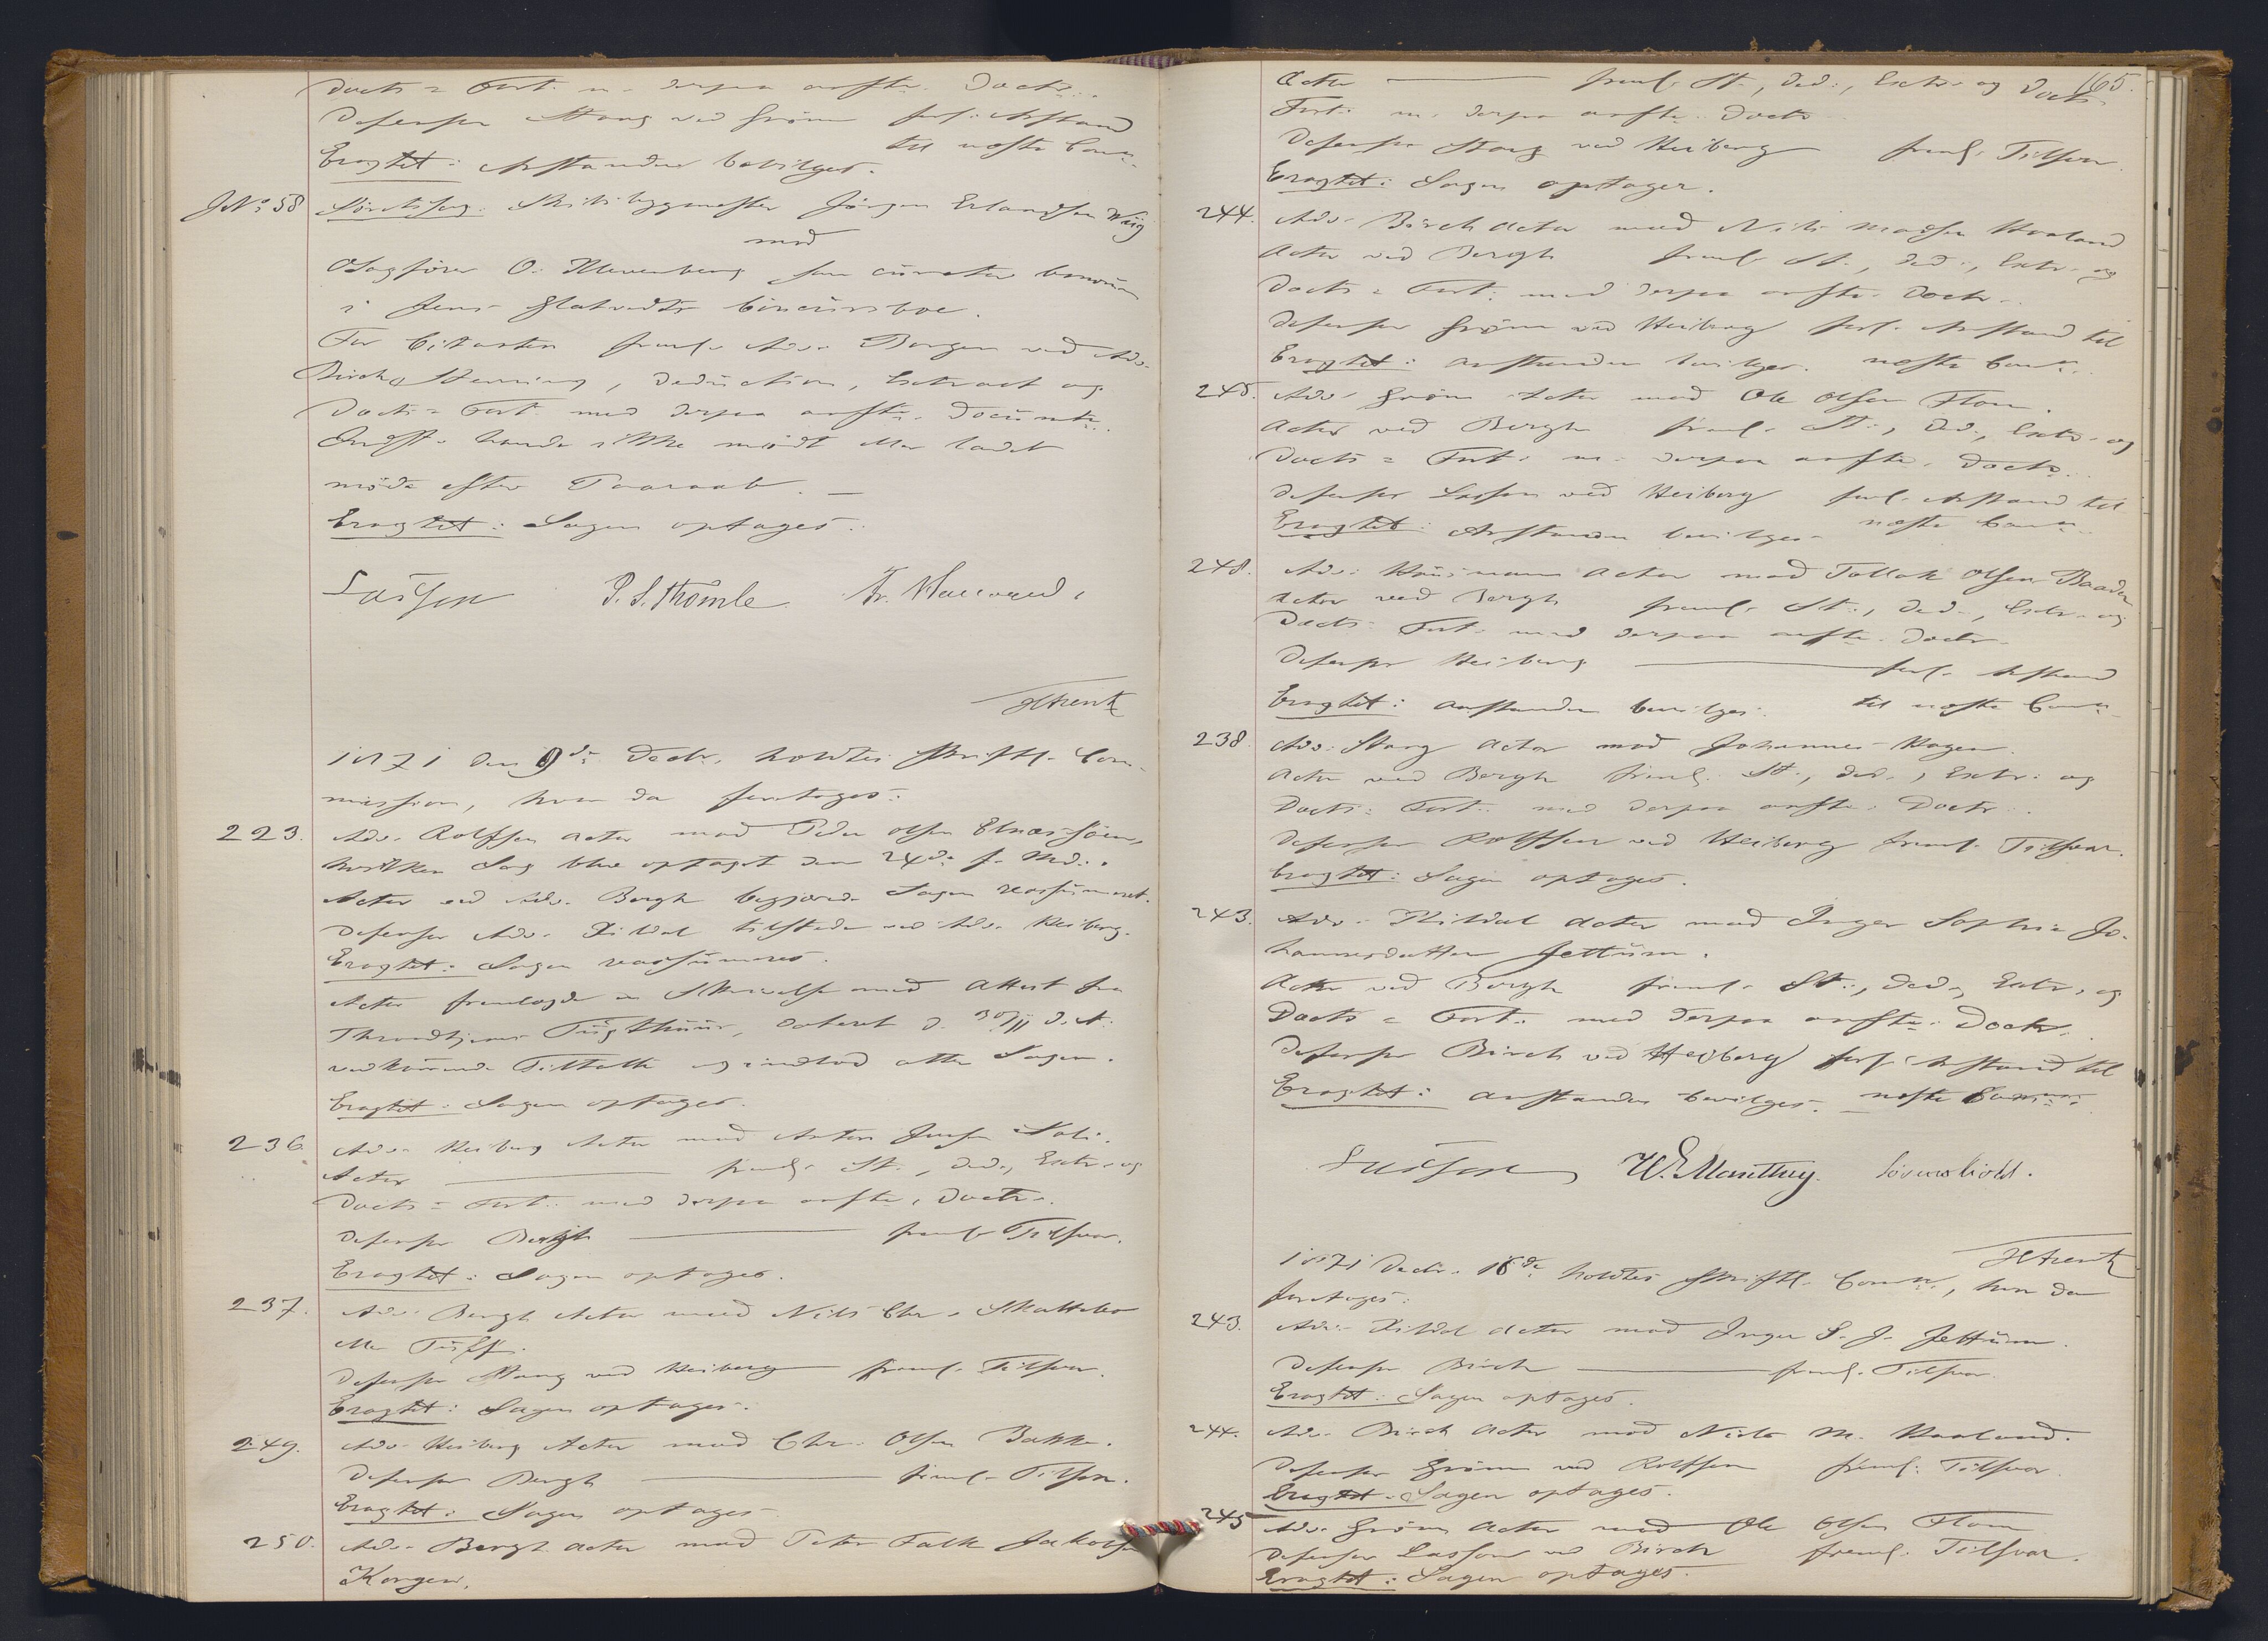 Docts = Fort. m. derpaa anfte. Doctr.
Defensor Stang ved Grönn forl. Anstand
til næste Comn.
Eragtet: Anstanden bevilges.
JNo 58 Söretssag. Skibsbygmester Jörgen Erlandsen Wiig
mod
OSagförer O. Klevenberg som curator bonorum
i Jens Flatvedts Concursboe.
For Citanten freml. Adv. Bergh ved Adv.
Birch Stevning, Deduction, Extract og
Docts = Fort. med derpaa anfte. Documtr.
Indst. havde ikke mödt eller ladet
möde efter Paaraab. —
Eragtet: Sagen optages.
Lasson P. S. Thomle
HArentz
1871 den 9de Decbr. holdtes skriftl. Com-
mission, hvor da foretoges:
223. Adv. Rolfsen Actor mod Peder Olsen
hvilken Sag blev optaget den 24de f. Md.
Actor ved Adv. Bergh begjærede Sagen reassumeret.
Defensor Adv. Kildal tilstede ved Adv. Heiberg.
Eragtet: Sagen reassumeres.
Actor fremlagde en Skrivelse med Attest fra
Throndhjems Tugthuus, dateret d. 30/11 d. A.
vedkommende Tiltalte og indlod atter Sagen.
Eragtet: Sagen optages.
236. Adv. Heiberg Actor mod Anton Jensen
Actor — freml. St., Ded., Extr. og
Docts = Fort. med derpaa anfte. Doctr.
Defensor Bergh — freml. Tilsvar.
Eragtet: Sagen optages.
237. Adv. Bergh Actor mod Nils Chr. Skattebo
eller Tuff.
Defensor Stang ved Heiberg freml. Tilsvar.
Eragtet: Sagen optages.
249. Adv. Heiberg Actor mod Chr. Olsen Bakke.
Defensor Bergh — freml. Tilsvar.
Eragtet: Sagen optages.
250. Adv. Bergh Actor mod Peter Falk Jakobsen
Kongen.
165.
Actor — freml. St., Ded., Extr. og Docts
Fort. m. derpaa anfte. Doctr.
Defensor Stang ved Heiberg freml. Tilsvar.
Eragtet: Sagen optages.
244. Adv. Birch Actor mod Nils Madsen Haaland
Actor ved Bergh freml. St., Ded., Extr. og
Docts = Fort. med derpaa anfte. Doctr.
Defensor Grönn ved Heiberg forl. Anstand til
Eragtet: Anstanden bevilges. næste Comn.
245. Adv. Grönn Actor mod Ole Olsen Flom.
Actor ved Bergh freml. St., Ded., Extr. og
Docts = Fort. m. derpaa anfte. Doctr.
Defensor Lasson ved Heiberg forl. Anstand til
Eragtet: Anstanden bevilges. næste Comn.
248. Adv. Actor mod Tollak Olsen Baaden
Actor ved Bergh freml. St., Ded., Extr. og
Docts = Fort. med derpaa anfte. Doctr.
Defensor Heiberg — forl. Anstand
Eragtet: Anstanden bevilges. til næste Comn.
238. Adv. Stang Actor mod Johannes Hagen.
Actor ved Bergh freml. St., Ded., Extr. og
Docts = Fort. med derpaa anfte. Doctr.
Defensor Rolfsen ved Heiberg freml. Tilsvar.
Eragtet: Sagen optages.
243. Adv. Kildal Actor mod Inger Sophie Jo-
hannesdatter Jettum.
Actor ved Bergh freml. St., Ded., Extr. og
Docts = Fort. med derpaa anfte. Doctr.
Defensor Birch ved Heiberg forl. Anstand til
Eragtet: Anstanden bevilges. næste Comn.
Lasson W. Manthey. Lövenskiold.
HArentz
1871 Decbr. 16de holdtes skriftl. Comn., hvor da
foretoges:
243. Adv. Kildal Actor mod Inger S. J. Jettum.
Defensor Birch — freml. Tilsvar.
Eragtet: Sagen optages.
244. Adv. Birch Actor mod Nils M. Haaland.
Defensor Grönn ved Rolfsen freml. Tilsvar.
Eragtet: Sagen optages.
245 Adv. Grönn Actor mod Ole Olsen Flom
Defensor Lasson ved Birch freml. Tilsvar.
Eragtet: Sagen optages.